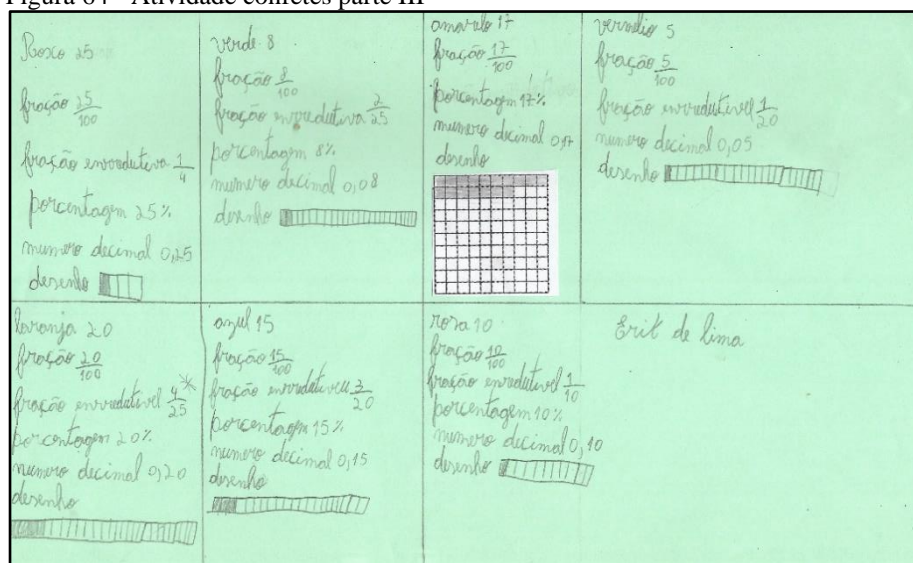 Figura 64 - Atividade confetes parte III
Roxo 25
fração 25/100
fração enrredutiva 1/4
porcentagem 25%
numero decimal 0,25
desenho
verde 8
fração 8/100
fração enrredutiva 2/25
porcentagem 8%
numero decimal 0,08
desenho
amarelo 17
fração 17/100
porcentagem 17%
numero decimal 0,17
desenho
vermelho 5
fração 5/100
fração enrredutivel 1/20
numero decimal 0,05
desenho
laranja 20
fração 20/100
fração enrredutivel 4/25
porcentagem 20%
numero decimal 0,20
desenho
azul 15
fração 15/100
fração enrredutivel 3/20
porcentagem 15%
numero decimal 0,15
desenho
rosa 10
fração 10/100
fração enredutivel 1/10
porcentagem 10%
numero decimal 0,10
desenho
Erik de lima